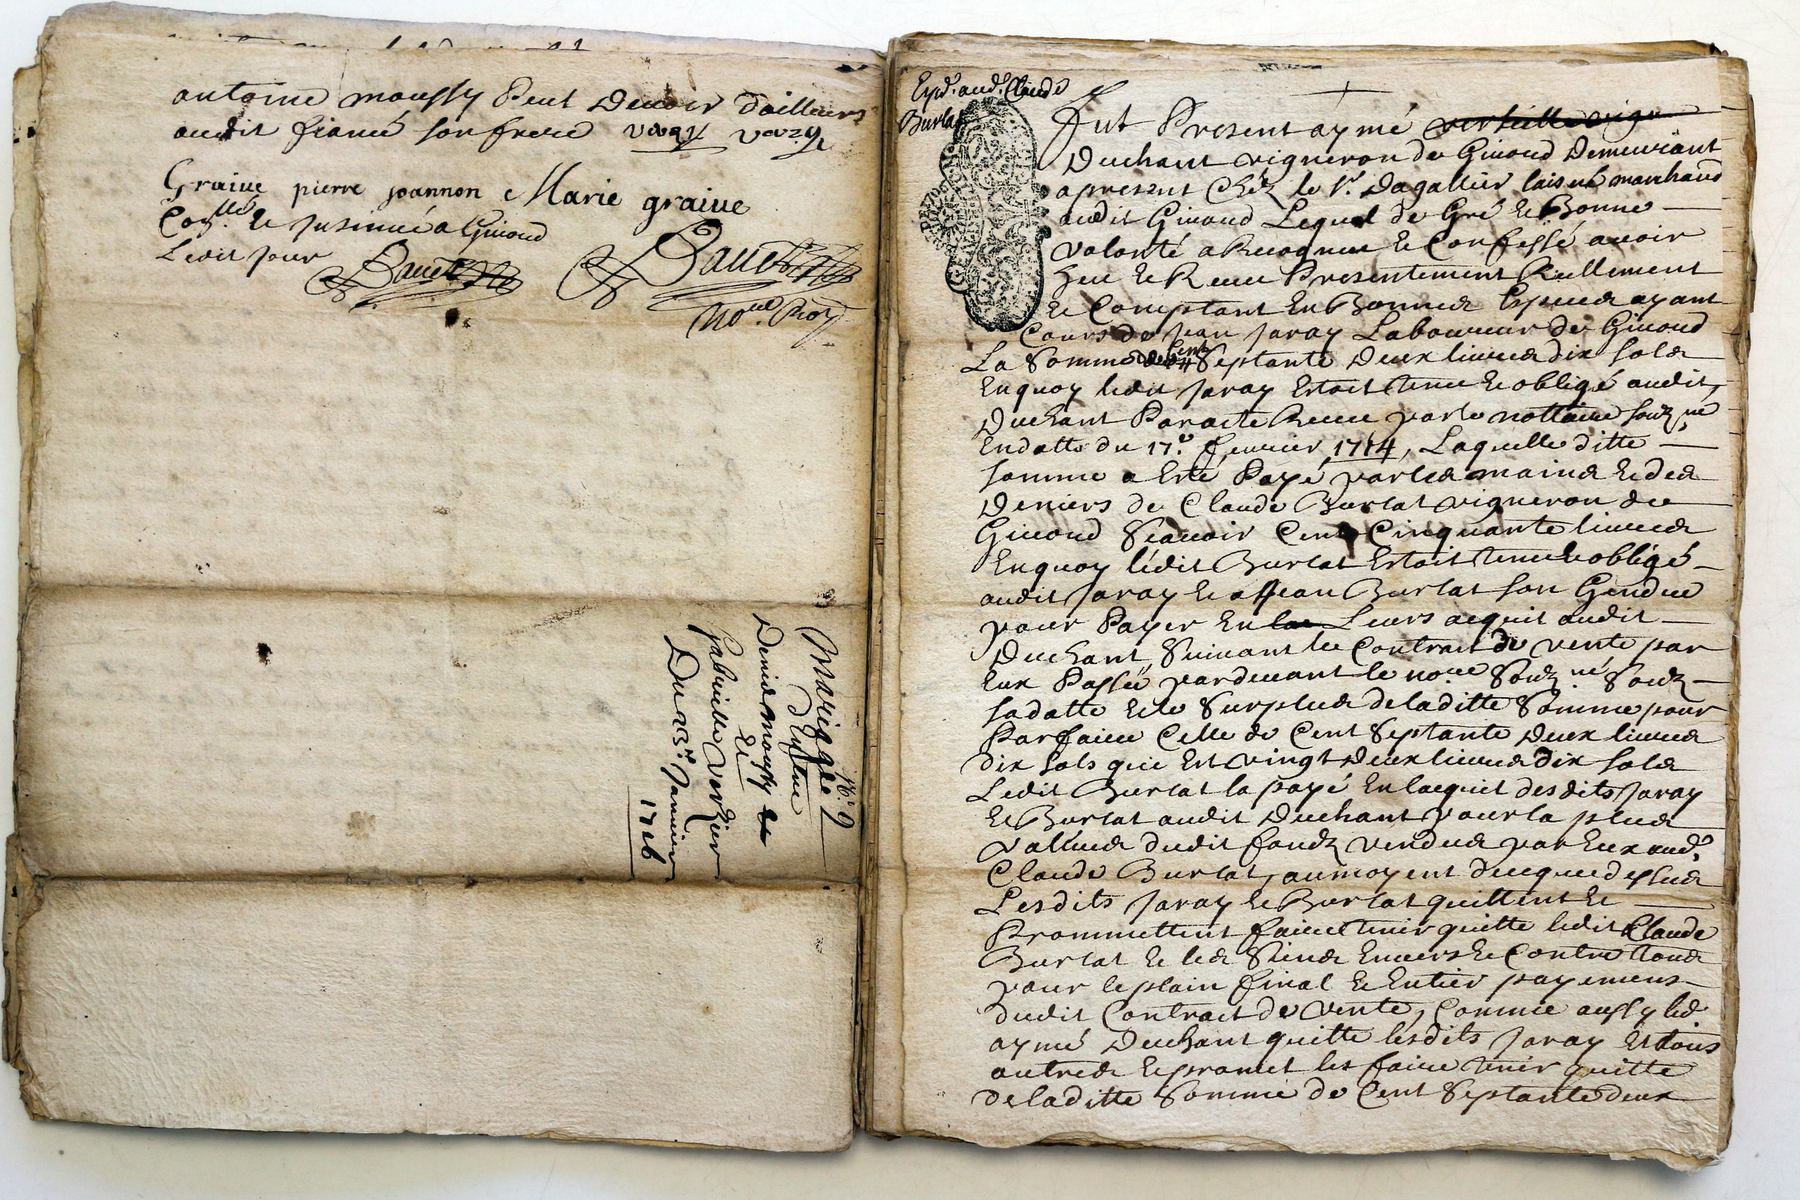 antoine moussy Peut Devoir d'ailleurs
audit fiancé son frere
Graive pierre joannon Marie graive
Con.llé et Insinué a Givord
Ledit jour
Mariage
Denis moussy
Et
gabrielle Verzier
Du 23.e Janvier
1716
Exp.é aud.t Claude
Burlat
Fut Present aymé
Duchant vigneron de Givord Demeurant
a present Chéz le S.r Dagallier marchand
audit Givord Lequel de Gré et Bonne
volonté a Recognu et Confessé avoir
heu et Receu Presentement Reellement
et Comptant En Bonnes Especes ayant
Cours de Jean Jaray Laboureur de Givord
La Somme de Cent Septante Deux livres dix sols
Enquoy ledit Jaray Estoit tenu et obligé audit
Duchant Par acte Receu par le nottaire souz.né
En datte du 17.e fevrier 1714, Laquelle ditte
somme a Esté Payé par les mains et des
Deniers de Claude Burlat vigneron de
Givord Scavoir Cent Cinquante livres
Enquoy ledit Burlat Estoit tenu et obligé
audit Jaray et a Jean Burlat son Gendre
pour Payer En Leurs acquit audit
Duchant, Suivant le Contrat de vente par
Eux Passée pardevant le no.re Souz.né Souz
sa datte Et le Surplus de laditte Somme pour
Parfaire Celle de Cent Septante deux livres
dix sols qui Est vingt deux livres dix sols
Ledit Burlat la payé En lacquit desdits Jaray
et Burlat audit Duchant pour la plus
vallues dudit fondz vendus par Eux aud.t
Claude Burlat, aumoyent de quoi dessus
Lesdits Jaray et Burlat quittent et
Promettent faire tenir quitte ledit Claude
Burlat et les Siens Envers et Contre tous
pour le plain final et Entier payement
dudit Contrat de vente, Comme aussy led.
aymé Duchant quitte lesdits Jaray et tous
autres et promet les faire tenir quitte
de laditte Somme de Cent Septante deux